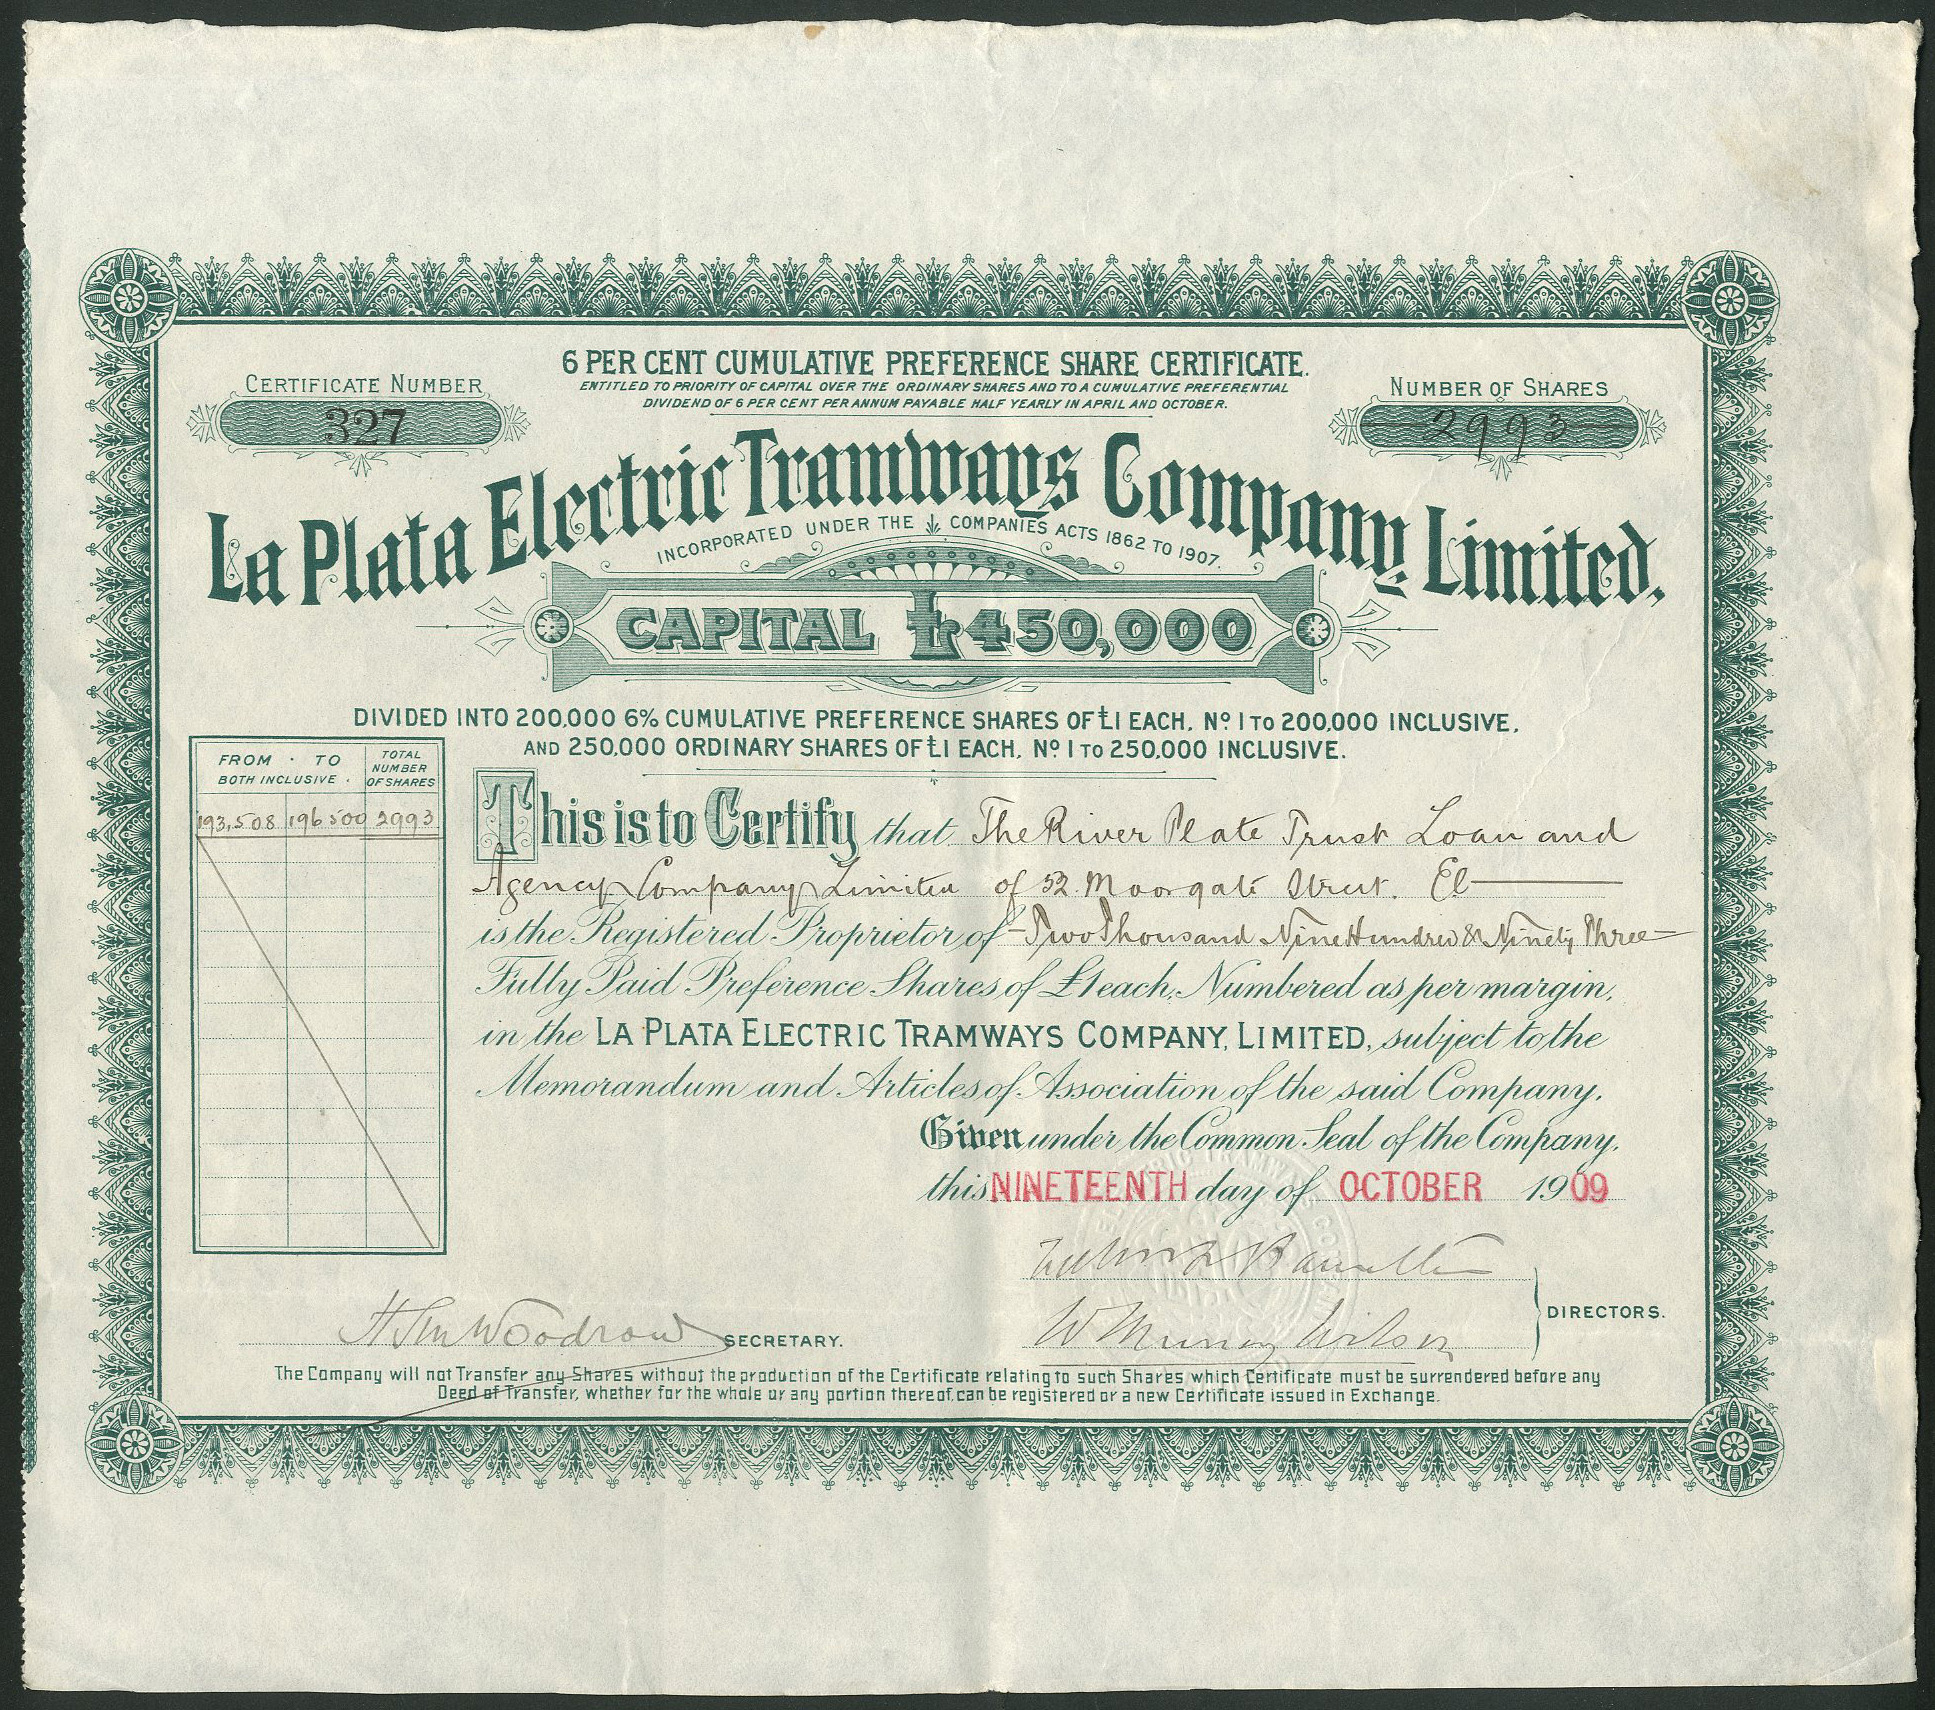 6 PER CENT CUMULATIVE PREFERENCE SHARE CERTIFICATE.
ENTITLED TO PRIORITY OF CAPITAL OVER THE ORDINARY SHARES AND TO A CUMULATIVE PREFERENTIAL
DIVIDEND OF 6 PER CENT PER ANNUM PAYABLE HALF YEARLY IN APRIL AND OCTOBER.
CERTIFICATE NUMBER
327
NUMBER OF SHARES
2993
La Plata Electric Tramways Company, Limited.
INCORPORATED UNDER THE COMPANIES ACTS 1862 TO 1907.
CAPITAL £450,000
DIVIDED INTO 200,000 6% CUMULATIVE PREFERENCE SHARES OF £1 EACH, No 1 TO 200,000 INCLUSIVE,
AND 250,000 ORDINARY SHARES OF £1 EACH, No 1 TO 250,000 INCLUSIVE.
FROM · TO
BOTH INCLUSIVE .
TOTAL
NUMBER
OF SHARES
193,508 196500 2993
This is to Certify that The River Plate Trust Loan and
Agency Company Limited of 52 Moorgate Street. EC
is the Registered Proprietor of Two Thousand Nine Hundred & Ninety Three
Fully Paid Preference Shares of £1 each, Numbered as per margin,
in the LA PLATA ELECTRIC TRAMWAYS COMPANY, LIMITED, subject to the
Memorandum and Articles of Association of the said Company.
Given under the Common Seal of the Company,
this NINETEENTH day of OCTOBER 1909
W Murray Wilson
DIRECTORS.
Woodrow SECRETARY.
The Company will not Transfer any Shares without the production of the Certificate relating to such Shares which Certificate must be surrendered before any
Deed of Transfer, whether for the whole or any portion thereof, can be registered or a new Certificate issued in Exchange.